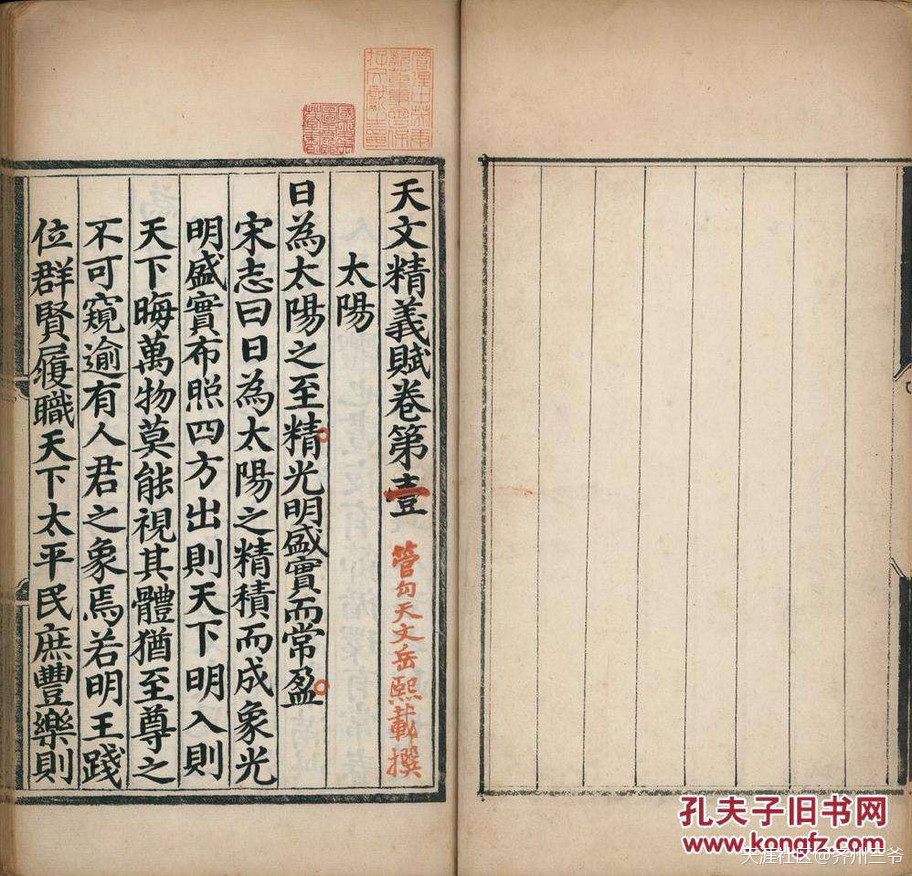 天文精義賦卷第壹
管勾天文岳熙載撰
太陽
日為太陽之至精光明盛實而常盈
宋志曰日為太陽之精積而成象光
明盛實布照四方出則天下明入則
天下晦萬物莫能視其體猶至尊之
不可窺逾有人君之象焉若明王踐
位群賢履職天下太平民庶豐樂則
管理中英庚款董事會保存文獻之章
國立中央圖書館考藏
孔夫子旧书网
www.kongfz.com
天涯社区@齐州三爷